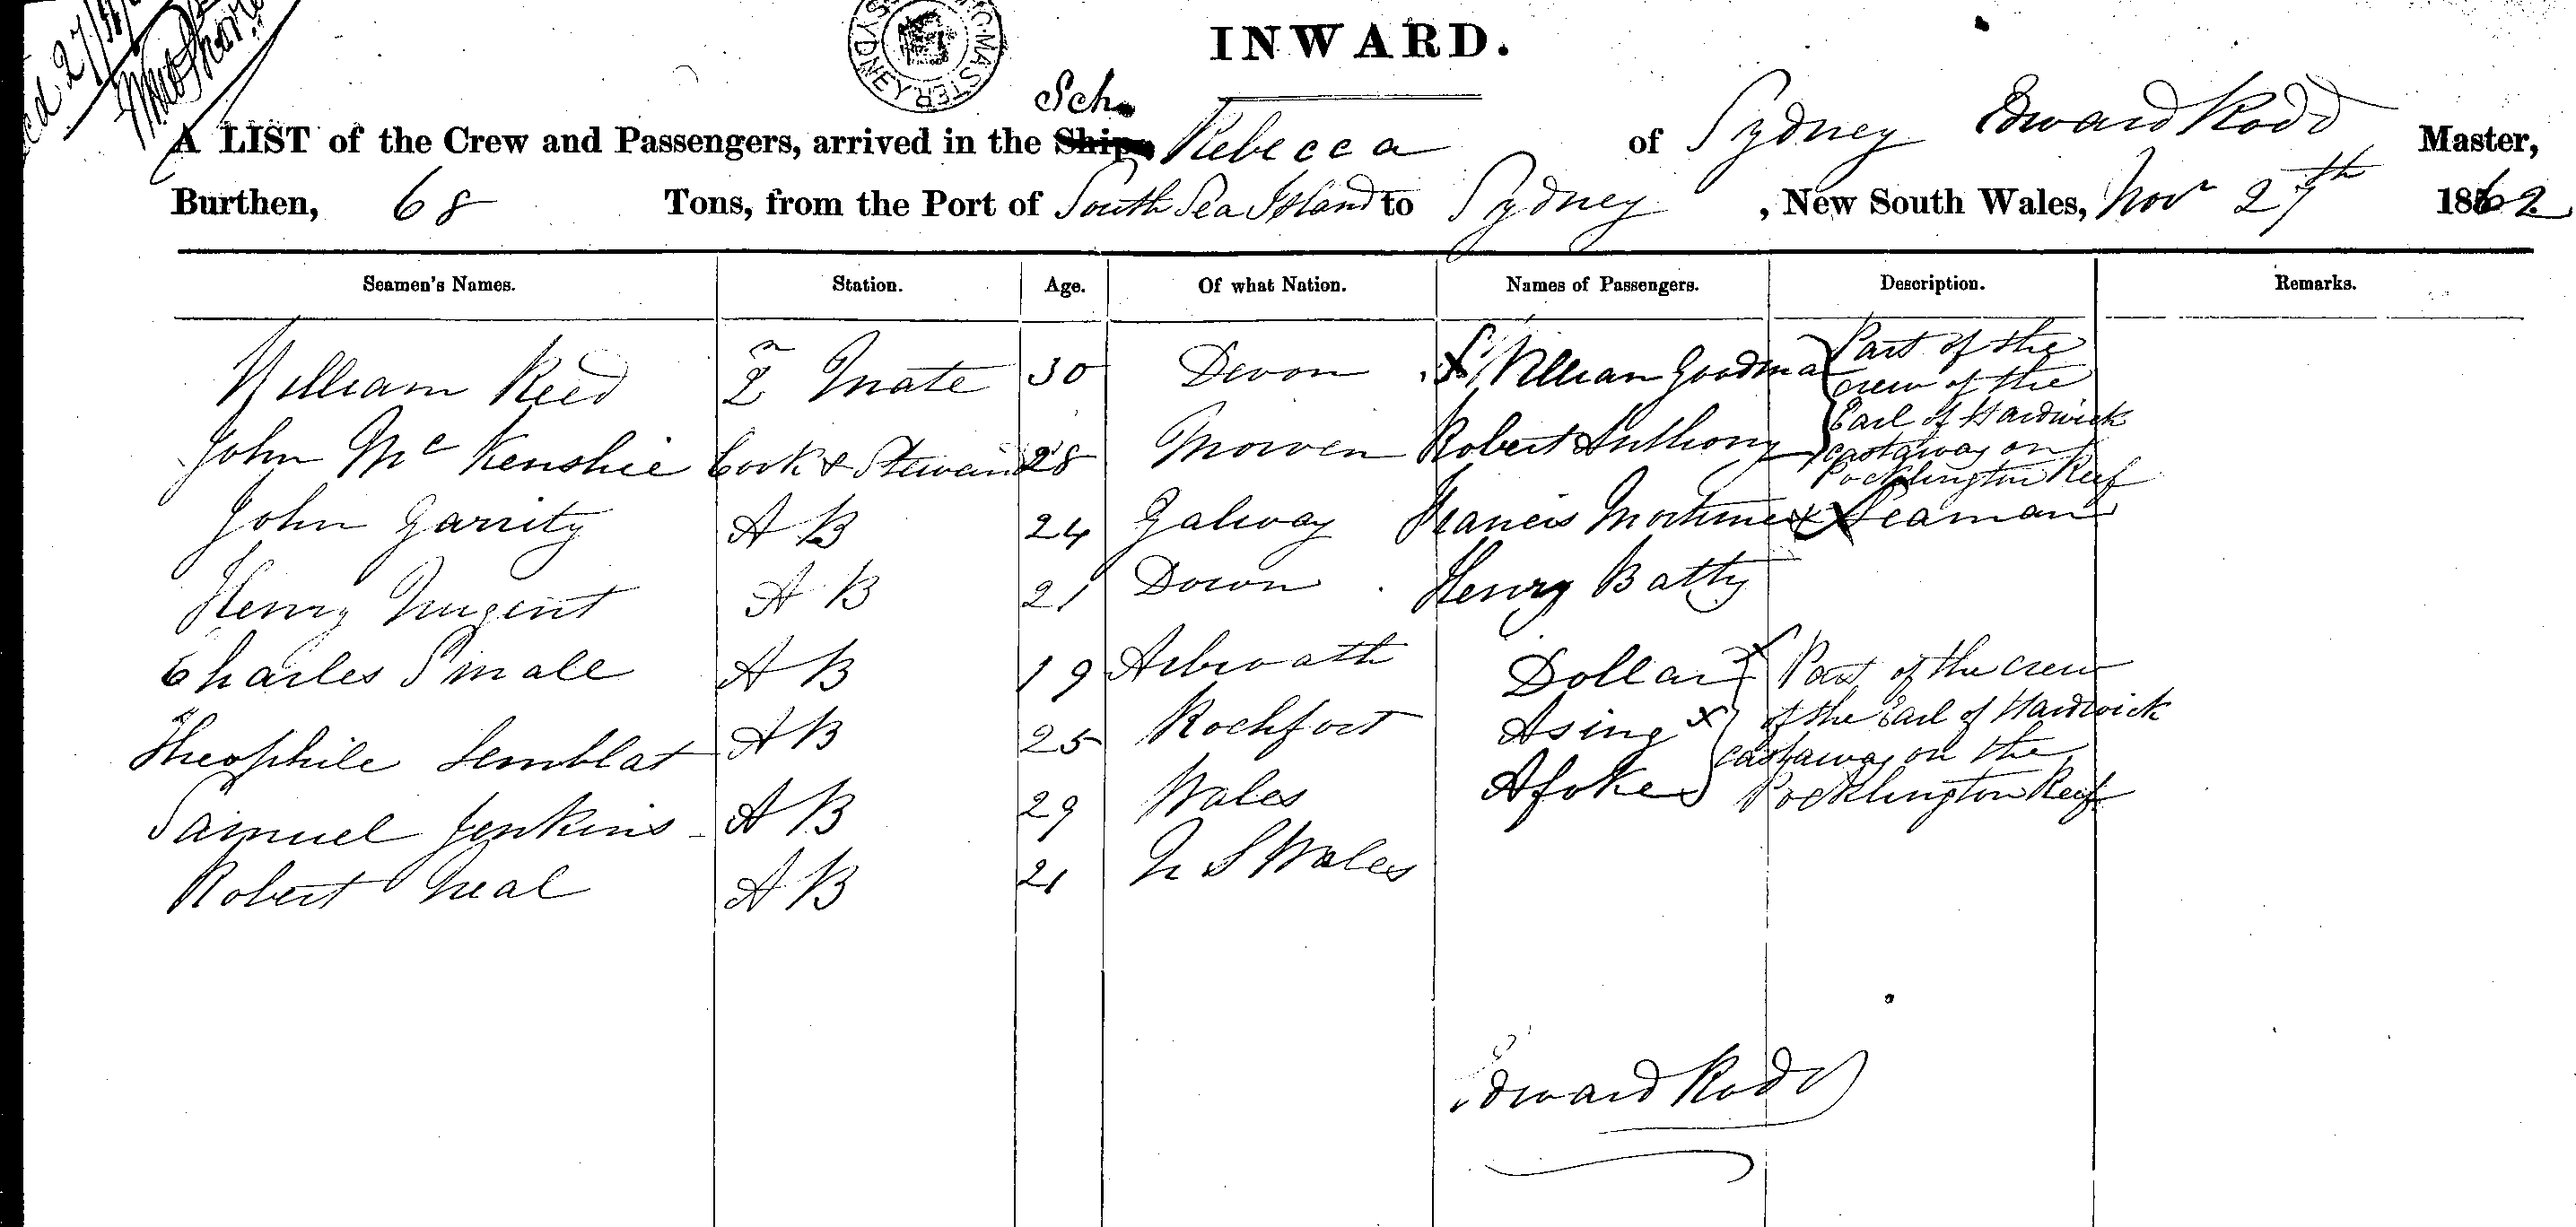 INWARD.
Sch.
A LIST of the Crew and Passengers, arrived in the Ship, Rebecca of Sydney Edward Rodd Master,
Burthen, 68 Tons, from the Port of South Sea Island to Sydney, New South Wales, Novr 27th 1862
Seamen's Names. Station. Age. Of what Nation. Names of Passengers. Description. Remarks.
William Reed 2n Mate 30 Devon William Goodman Part of the
crew of the
Earl of Hardwick
John Mc Kenshie Cook & Steward 28 Morven Robert Anthony castaway on
Pocklington Reef
John Garrity A B 24 Galway Francis Mortimer X Seaman
Henry Nugent A B 21 Down Henry Batty
Charles Smale A B 19 Arbroath Dollar X Part of the crew
Theophile Semblat A B 25 Rochfort Asing X of the Earl of Hardwick
castaway on the
Samuel Jenkins A B 29 Wales Afoke Pocklington Reef
Robert Neal A B 21 N S Wales
Edward Rodd